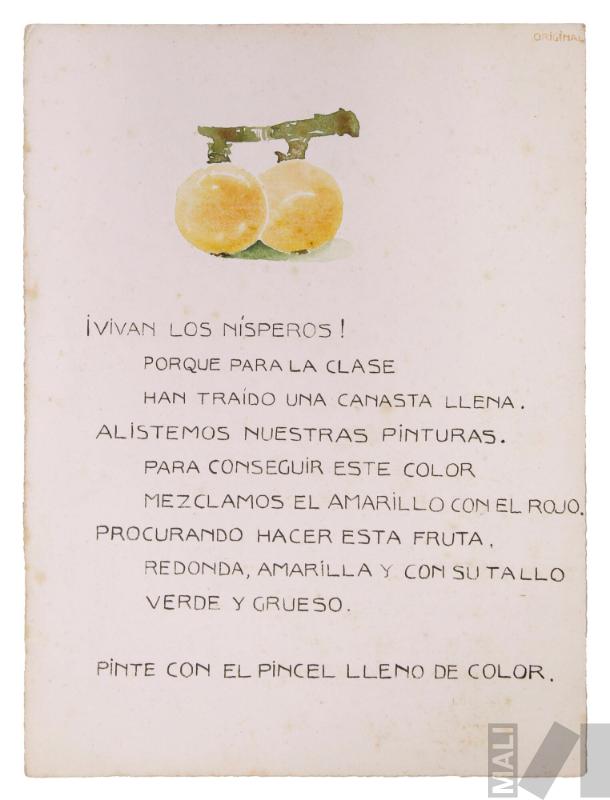 ORIGINAL
¡VIVAN LOS NÍSPEROS!
PORQUE PARA LA CLASE
HAN TRAÍDO UNA CANASTA LLENA.
ALISTEMOS NUESTRAS PINTURAS.
PARA CONSEGUIR ESTE COLOR
MEZCLAMOS EL AMARILLO CON EL ROJO.
PROCURANDO HACER ESTA FRUTA,
REDONDA, AMARILLA Y CON SU TALLO
VERDE Y GRUESO.
PINTE CON EL PINCEL LLENO DE COLOR.
MALI